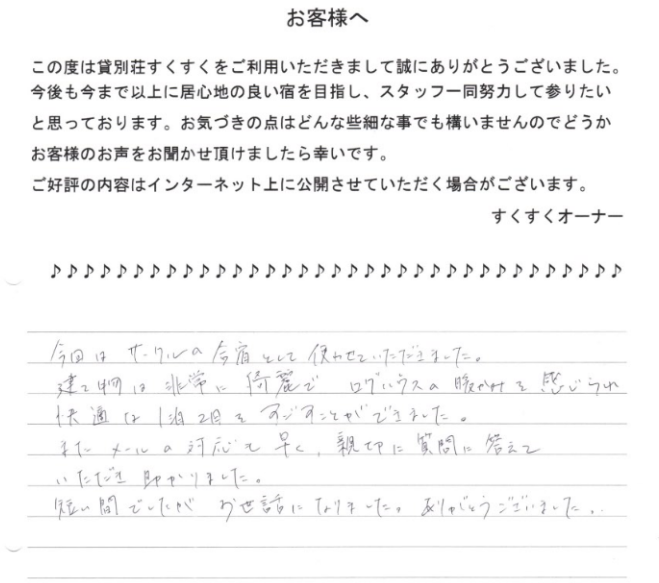 お客様へ
この度は貸別荘すくすくをご利用いただきまして誠にありがとうございました。
今後も今まで以上に居心地の良い宿を目指し、スタッフ一同努力して参りたい
と思っております。お気づきの点はどんな些細な事でも構いませんのでどうか
お客様のお声をお聞かせ頂けましたら幸いです。
ご好評の内容はインターネット上に公開させていただく場合がございます。
すくすくオーナー
♪♪♪♪♪♪♪♪♪♪♪♪♪♪♪♪♪♪♪♪♪♪♪♪♪♪♪♪♪♪♪♪♪♪♪
今回は サークルの合宿として使わせていただきました。
建て物は非常に綺麗で ログハウスの暖かみを感じられ
快適な1泊2日をすごすことができました。
またメールの対応も早く、親切に質問に答えて
いただき助かりました。
短い間でしたが お世話になりました。ありがとうございました。